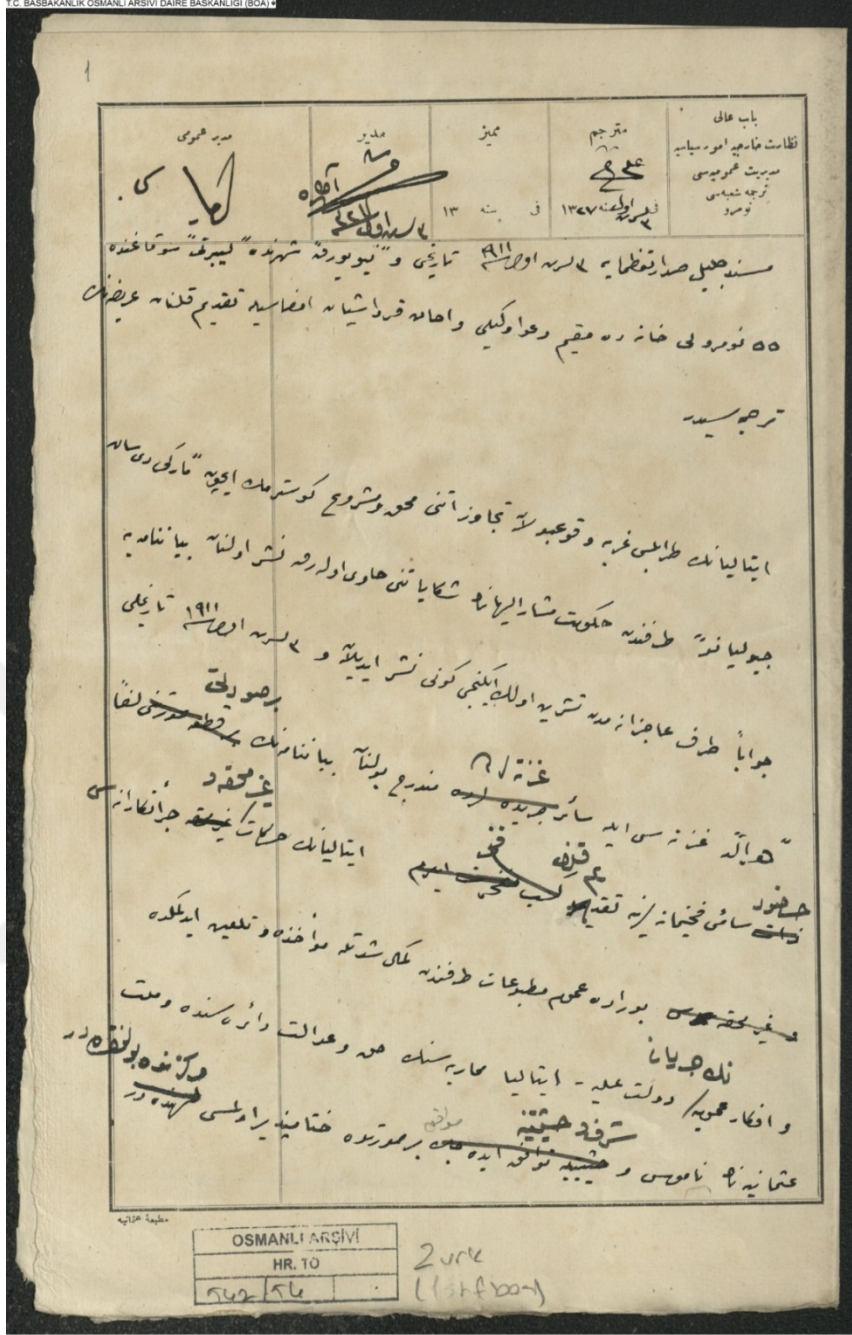 T.C. BAŞBAKANLIK OSMANLI ARŞİVİ DAİRE BAŞKANLIĞI (BOA)
1
باب عالی
نظارت خارجیه امور سیاسیه
مدیریت عمومیه‌سی
ترجمه شعبه‌سی
نومرو
مترجم
ممیز
مدیر
مدیر عمومی
فی سنه ١٣٢٧
فی سنه ١٣
مسند جلیل صدارتعظمایه ٣ تشرین اول سنه ١٩١١ تاریخی و "نیویورق" شهرنده "لیبرتی" سوقاغنده
٥٥ نومرولی خانه ده مقیم دعوا وکیلی قرداشیان امضاسیله تقدیم قلنان عریضه‌نك
ترجمه سیدر
ایتالیانك طرابلس غربه وقوعبولان تجاوزاتنی محق ومشروع کوسترمك ایچون "مارکی دی سان
جیولیانو" طرفندن حکومت مشار الیهانك شکایاتنی حاوی اوله‌رق نشر اولنان بیاننامه یه
جواباً طرف عاجزانه مدن تشرین اولك ایکنجی کونی نشر ایدیلان و ٣ تشرین اول سنه ١٩١١ تاریخلی
برصورتی
"هرالد" غزته سی ایله سائر جریده لرده مندرج بولنان بیاننامه‌نك لفاً
غزته لر
حضور سامئ فخیمانه لرینه تقدیم ایتالیانك حرکات جرأتکارانه سی
غیر محقه و
بوراده عموم مطبوعات طرفندن کمال شدتله مؤاخذه و تلعین ایدلمکده
و افکار عمومیه نك جریانی دولت علیه - ایتالیا محاربه سنك حق و عدالت دائره سنده و ملت
عثمانیه نك ناموس و شرف و حیثیتنه موافق بر صورتده ختامپذیر اولمسی مرکزنده بولنمقده در
مطبعهٔ عثمانیه
OSMANLI ARŞİVİ
HR. TO
542/56
2 vrk